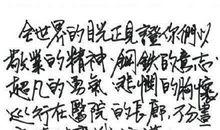 全世界的目光正見證你們以
敬業的精神，鋼鐵的意志，
超凡的勇氣，悲憫的胸懷，
逆行在醫院的長廊，不分晝